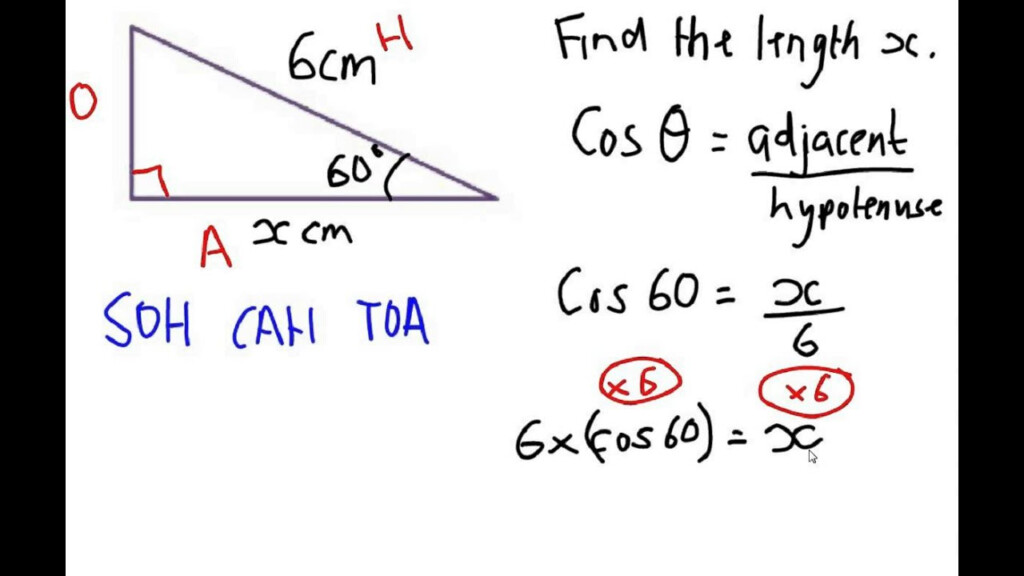 6cm H
O
60°
A x cm
SOH CAH TOA
Find the length x.
Cos θ = adjacent
hypotenuse
Cos 60 = x
6
×6 ×6
6×(Cos 60) = x